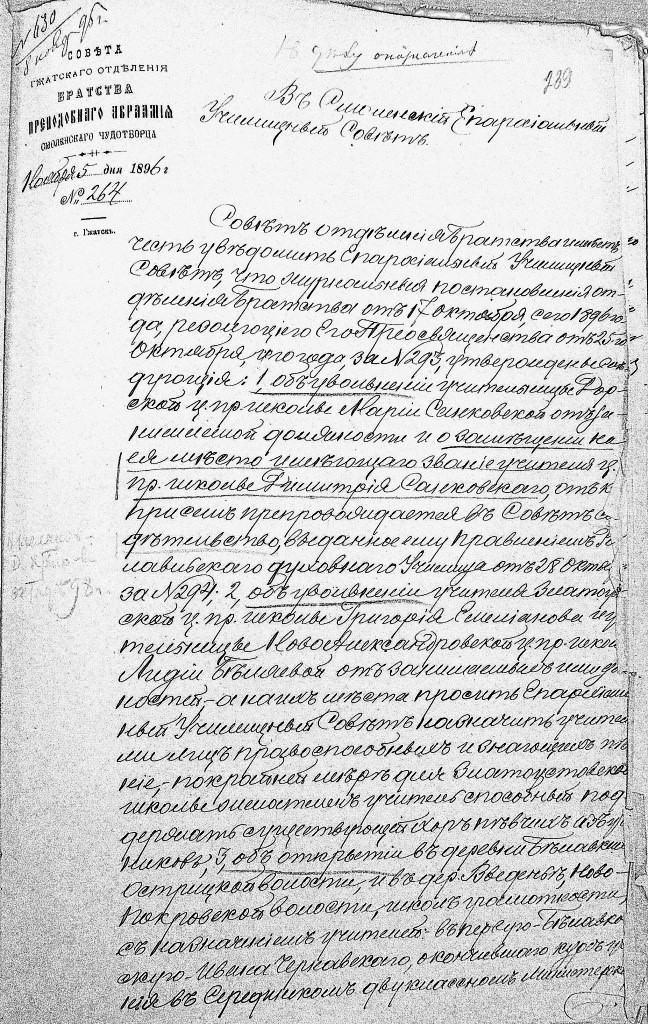 № 630
8 нояб 96 г.
СОВѢТА
ГЖАТСКАГО ОТДѢЛЕНІЯ
БРАТСТВА
ПРЕПОДОБНАГО АВРААМІЯ
СМОЛЕНСКАГО ЧУДОТВОРЦА
Ноября 5 дня 1896 г
№ 264
г. Гжатскъ.
Къ дѣлу о назначеніи
239
Въ Смоленскій Епархіальный
Училищный Совѣтъ.
Совѣтъ отдѣленія Братства имѣетъ
честь увѣдомить Епархіальный Училищный
Совѣтъ, что журнальныя постановленія от-
дѣленія Братства отъ 17 октября, сего 1896 го-
да, резолюціею Его Преосвященства отъ 25го
Октября, сего года за № 293, утверждены слѣ
дующія: 1, объ увольненіи учительницы Дор-
ской ц. пр. школы Маріи Санковской отъ за-
нимаемой должности и о замѣщеніи на
ея мѣсто имѣющаго званіе учителя ц.
пр. школы Димитрія Санковскаго, отъ к
при семъ препровождается въ Совѣтъ сви-
дѣтельство, выданное ему Правленіемъ
духовнаго Училища отъ 28 Октяб
за № 294; 2, объ увольненіи учителя Златоу
ской ц. пр. школы Григорія Емельянова и у
тельницы Новоалександровской ц. пр. школ
Лидіи Бѣляевой отъ занимаемыхъ ими дол
ностей,- а на ихъ мѣста просить Епархіаль
ный Училищный Совѣтъ назначить учителя
ми лицъ правоспособныхъ и знающихъ пѣ
ніе,- по крайней мѣрѣ для Златоустовской
школы желателенъ учитель способный под
держать существующій хоръ пѣвчихъ изъ уче
никовъ, 3, объ открытіи въ деревни Бѣлавки
Острицкой волости, и въ дер. Введенье, Ново-
Покровской волости, школъ грамотности,
съ назначеніемъ учителей: въ первую - Бѣлавкс
скую - Ивана Чернавскаго, окончившаго курсъ уче
нія въ Середникомъ двухклассномъ Министерск